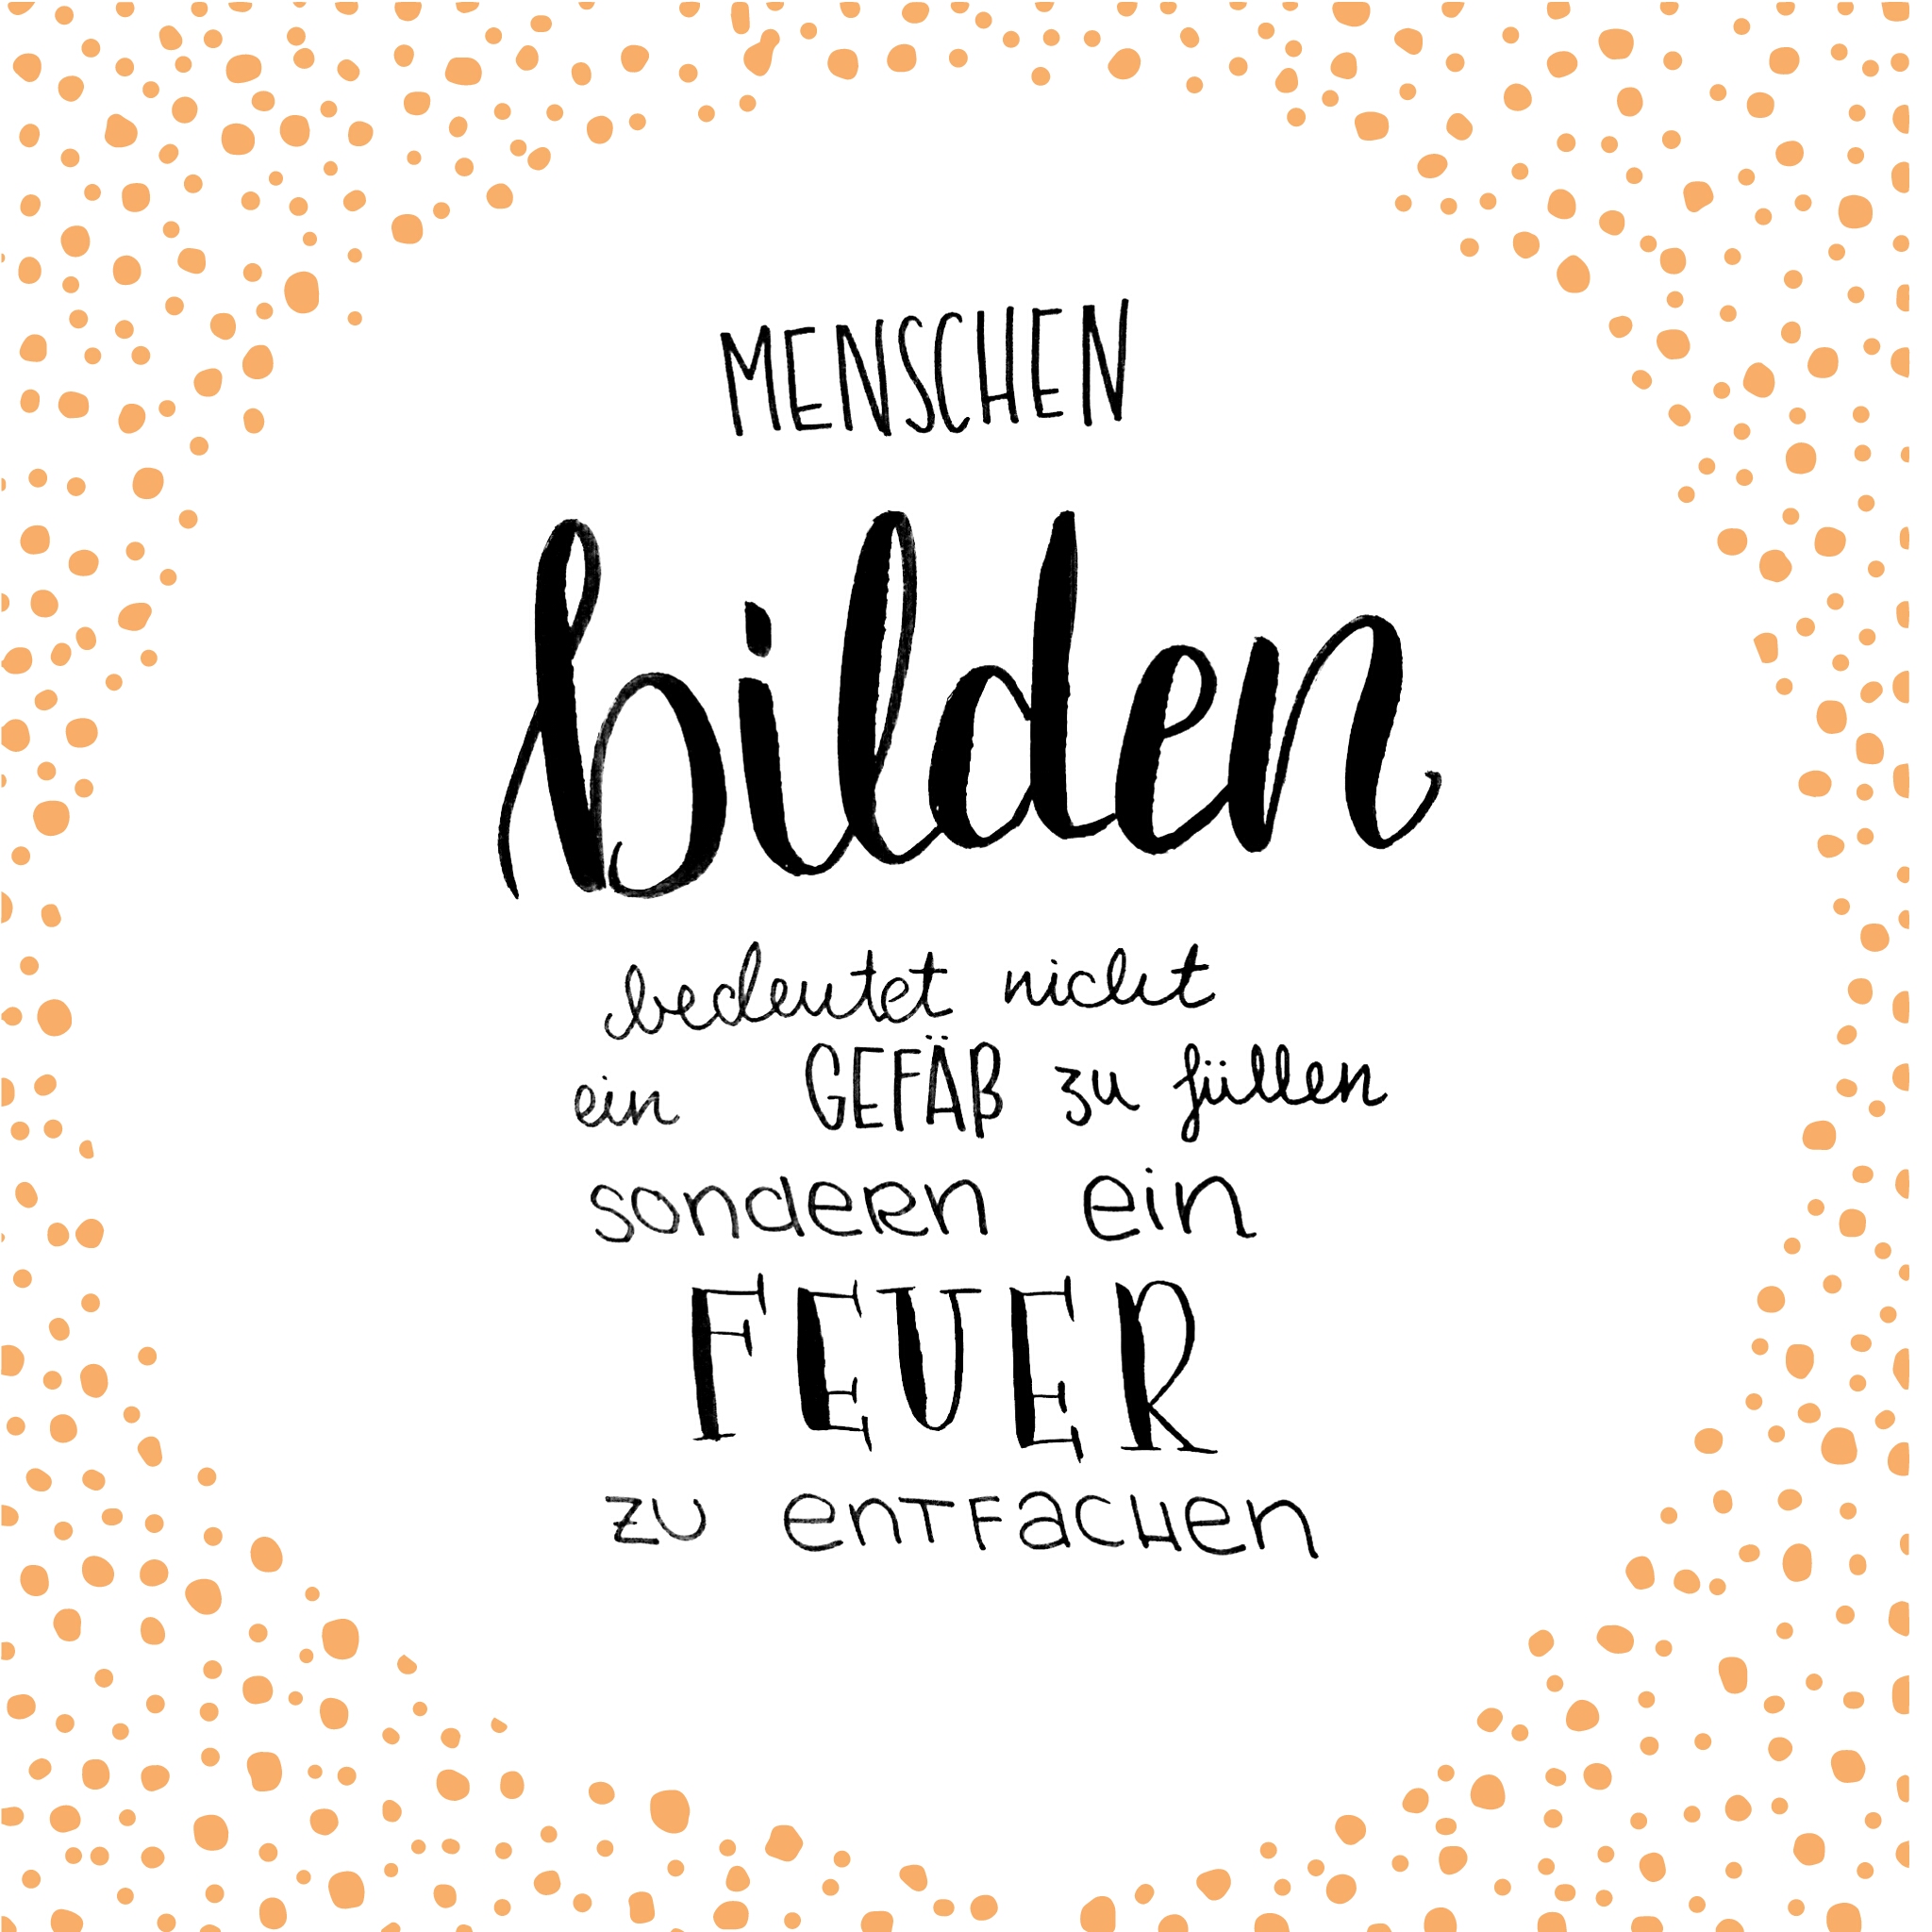 MENSCHEN
bilden
bedeutet nicht
ein GEFÄß zu füllen
sondern ein
FEUER
zu entfachen